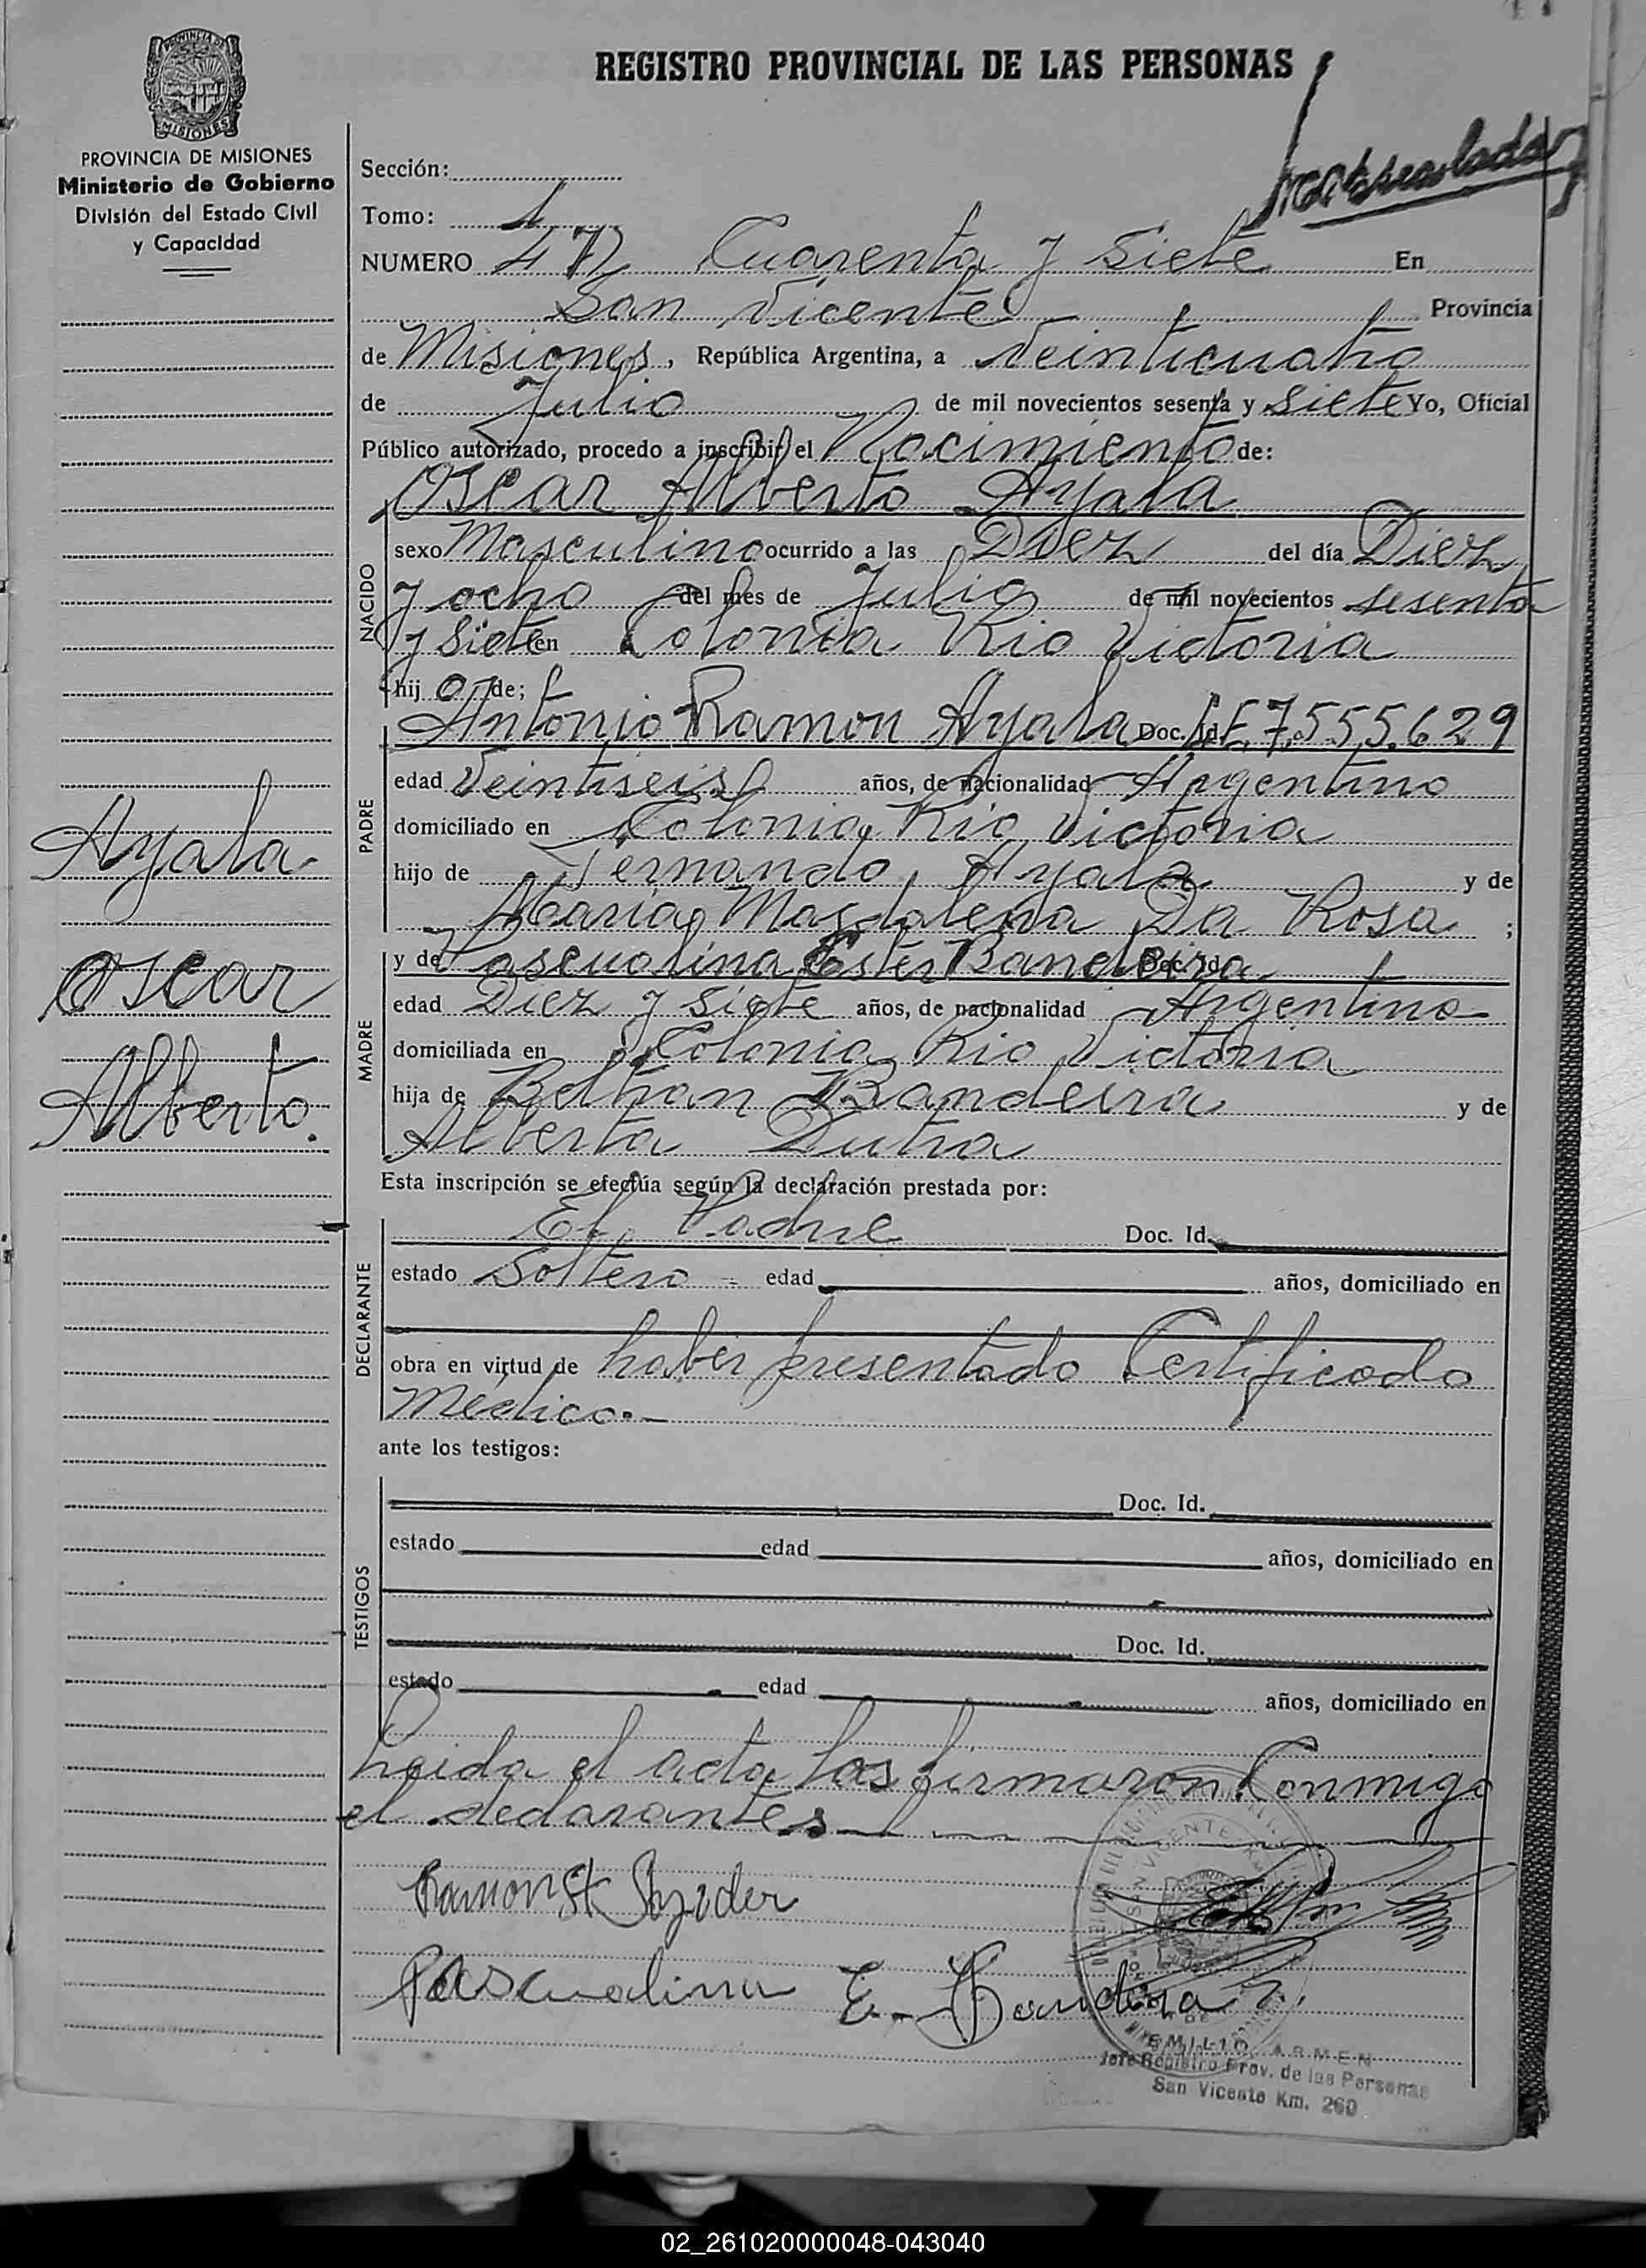 REGISTRO PROVINCIAL DE LAS PERSONAS
PROVINCIA DE MISIONES
PROVINCIA DE MISIONES
Ministerio de Gobierno
División del Estado Civil
y Capacidad
Ayala
Oscar
Alberto.
Sección:
Tomo: 1
NUMERO 47 Cuarenta y Siete En
San Vicente Provincia
de Misiones, República Argentina, a Veinticuatro
de Julio de mil novecientos sesenta y siete Yo, Oficial
Público autorizado, procedo a inscribir el Nacimiento de:
Oscar Alberto Ayala
NACIDO
sexo Masculino ocurrido a las Diez del día Diez
y ocho del mes de Julio de mil novecientos sesenta
y siete en Colonia Rio Victoria
hijo de;
PADRE
Antonio Ramon Ayala Doc. Id. L.E. 7.555.629
edad Veintiseis años, de nacionalidad Argentino
domiciliado en Colonia Rio Victoria
hijo de Fernando Ayala y de
Maria Magdalena Da Rosa ;
MADRE
y de Pascualina Ester Bandeira Doc. Id.
edad Diez y siete años, de nacionalidad Argentina
domiciliada en Colonia Rio Victoria
hija de Beltran Bandeira y de
Alberta Dutra
Esta inscripción se efectúa según la declaración prestada por:
DECLARANTE
El Padre Doc. Id.
estado Soltero edad años, domiciliado en
obra en virtud de haber presentado Certificado
Médico.-
ante los testigos:
TESTIGOS
Doc. Id.
estado edad años, domiciliado en
Doc. Id.
estado edad años, domiciliado en
Leida el acta las firmaron Conmigo
el declarantes
Ramon
Pascualina E. Bandeira
SAN VICENTE
EMILIO ARMEN
Jefe Registro Prov. de las Personas
San Vicente Km. 260
02_261020000048-043040